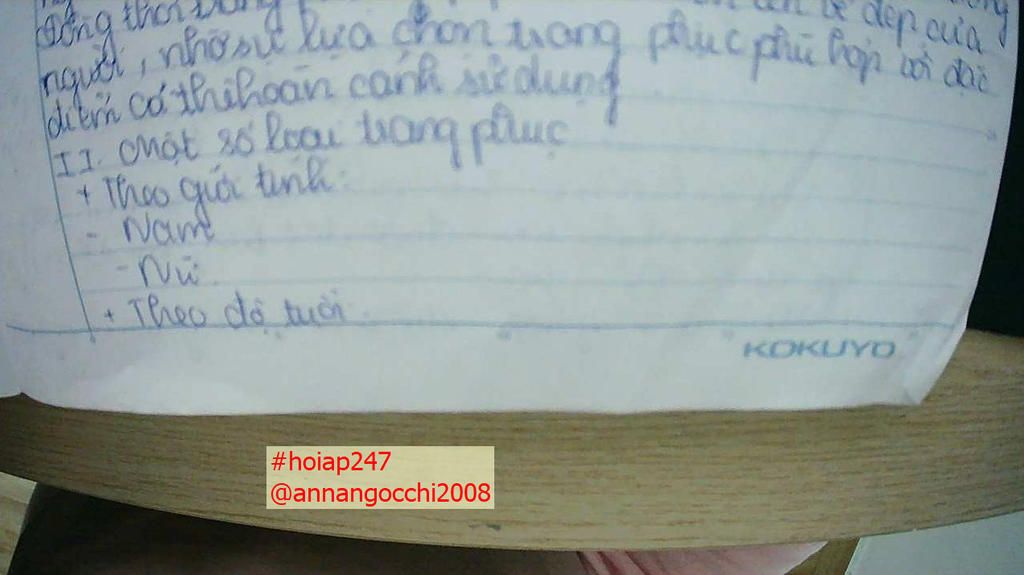 đồng thời trang
vẻ đẹp của
người, nhờ sự lựa chọn trang phục phù hợp với đặc
điểm cơ thể hoàn cảnh sử dụng
II. Một số loại trang phục
+ Theo giới tính:
- Nam
- Nữ.
+ Theo độ tuổi.
KOKUYO
#hoiap247
@annangocchi2008